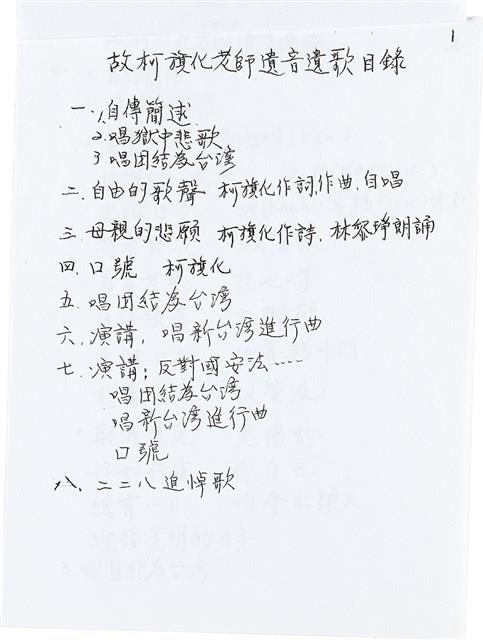 1
故柯旗化老師遺音遺歌目錄
一、1.自傳簡述
2.唱獄中悲歌
3 唱团結為台湾
二、自由的歌聲 柯旗化作詞,作曲,自唱
三、母親的悲願 柯旗化作詩,林黎琤朗誦
四、口號 柯旗化
五、唱团結為台湾
六、演講,唱新台湾進行曲
七、演講;反對國安法.....
唱团結為台湾
唱新台湾進行曲
口號
八、二二八追悼歌